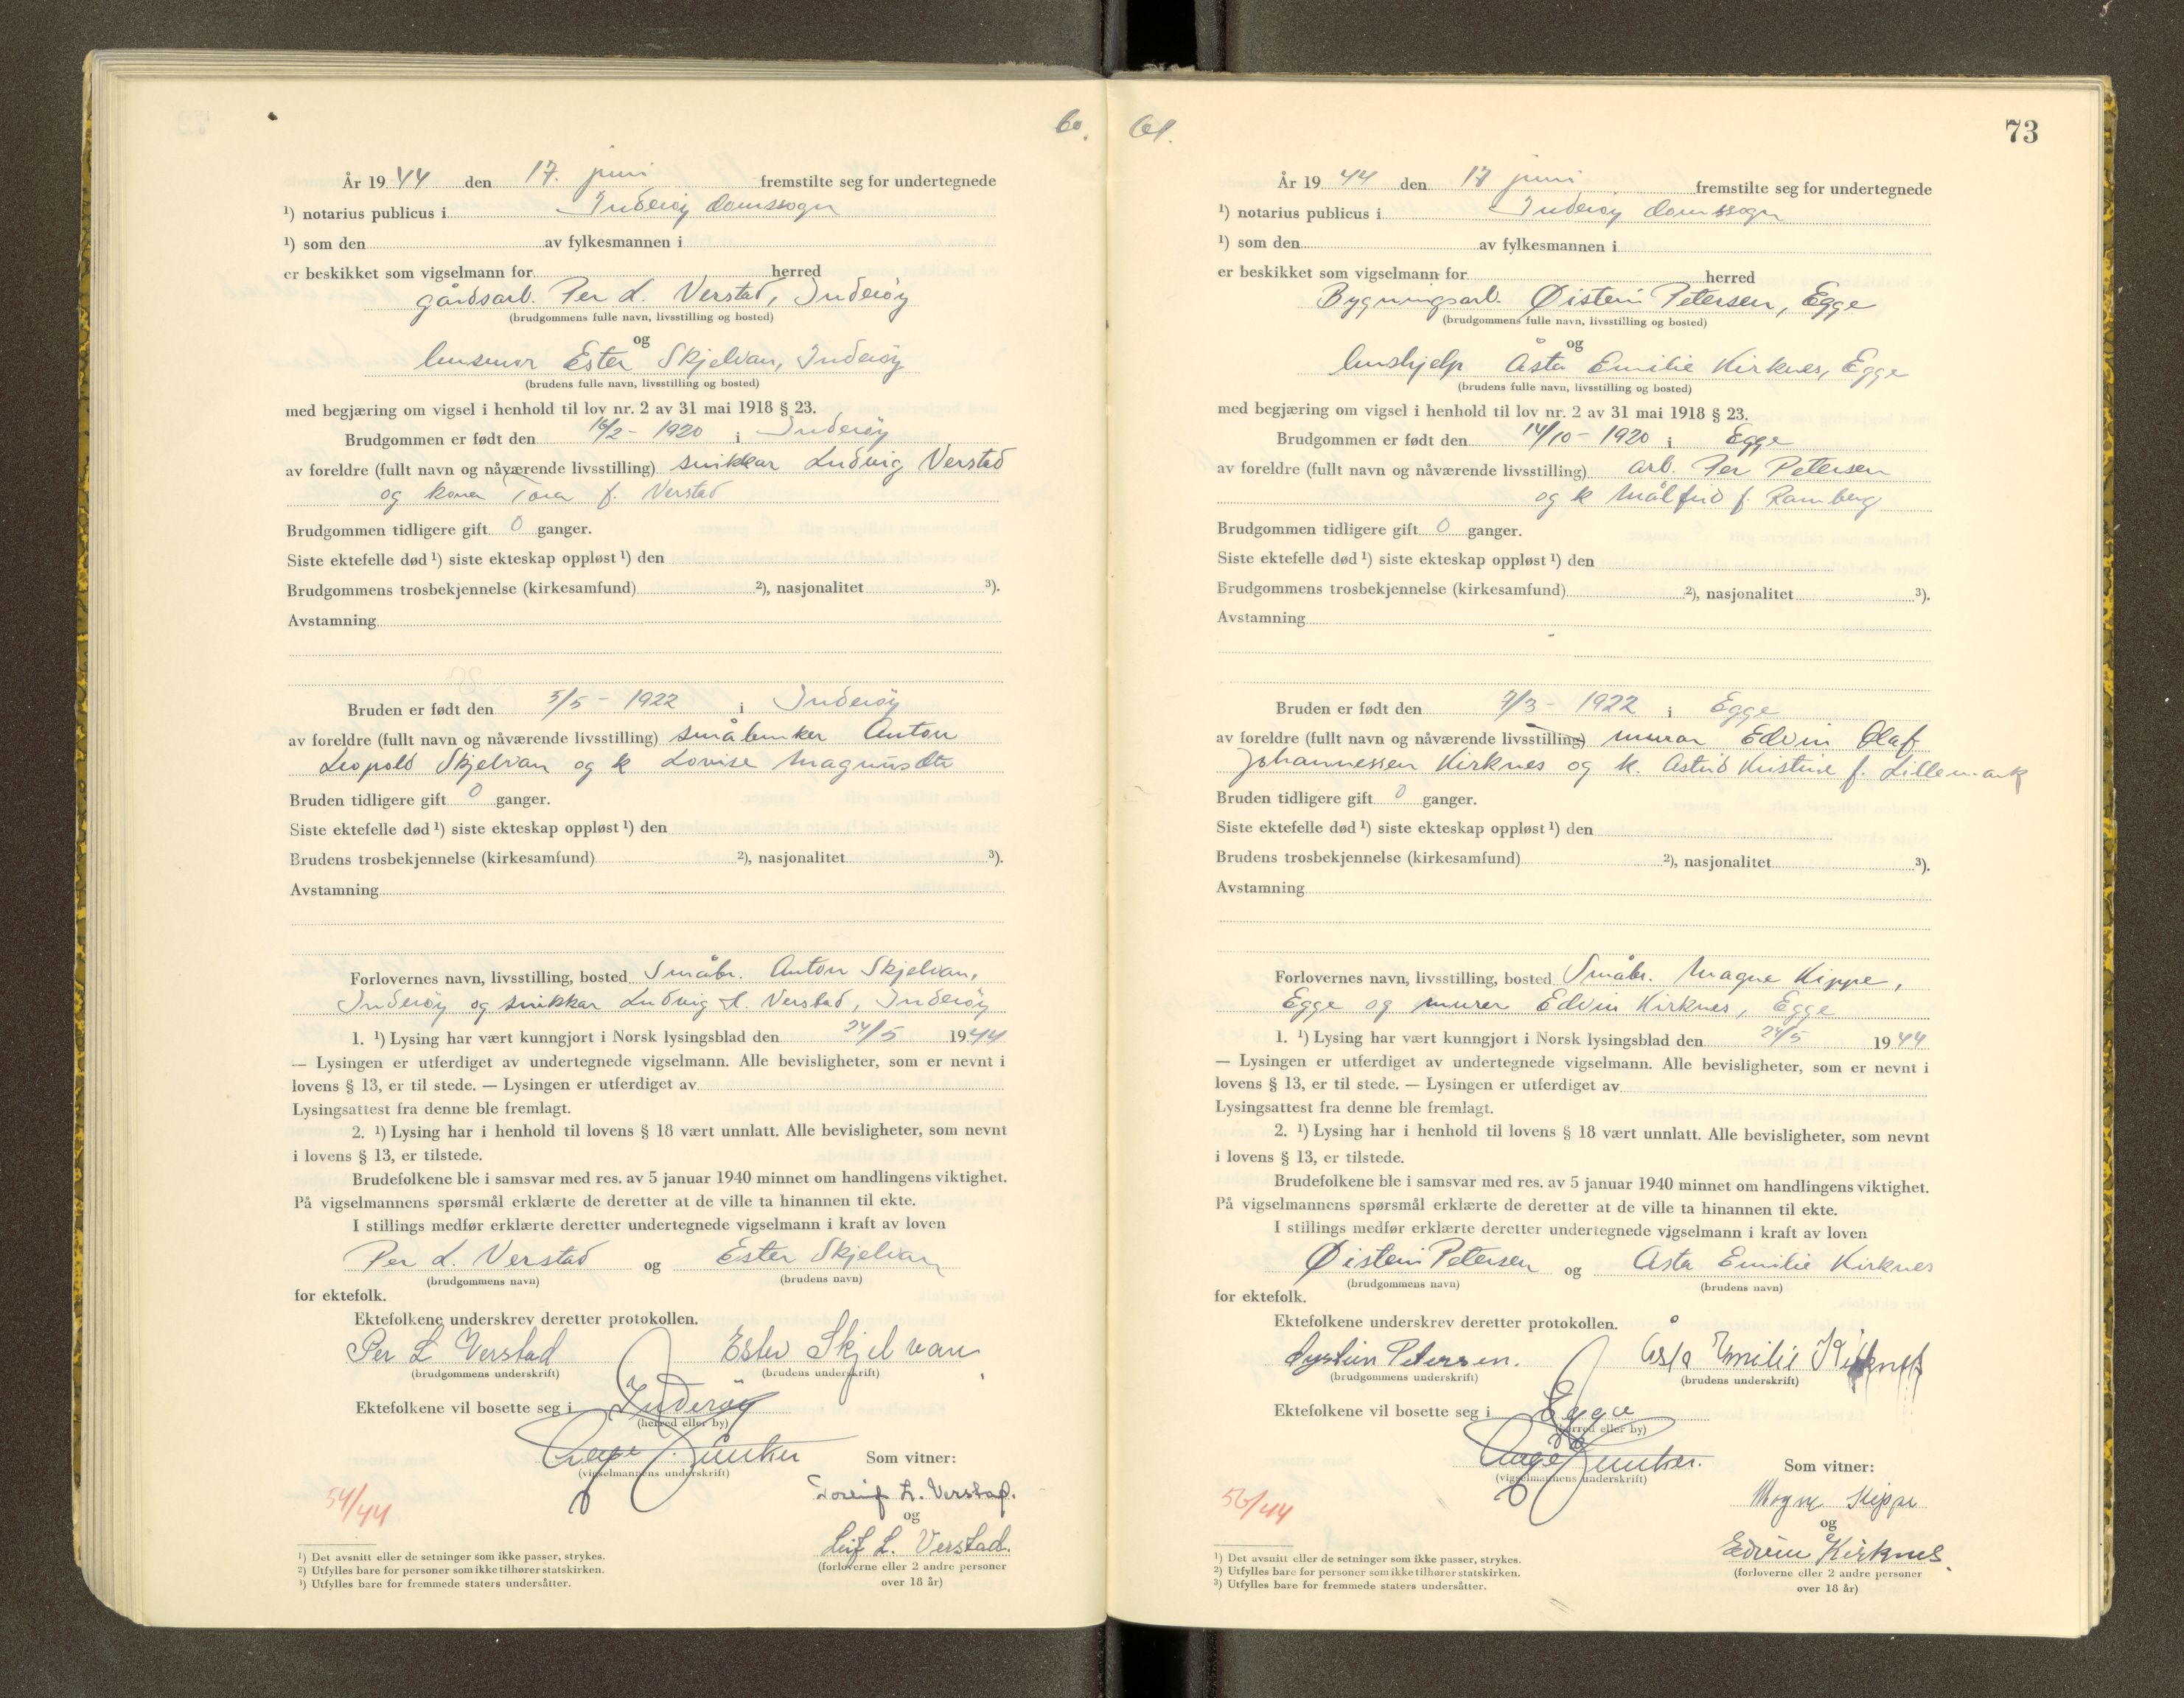 60.
År 1944 den 17. juni fremstilte seg for undertegnede
¹) notarius publicus i Inderøy domssogn
¹) som den av fylkesmannen i
er beskikket som vigselmann for herred
gårdsarb. Per L. Verstad, Inderøy
(brudgommens fulle navn, livsstilling og bosted)
og
husmor Ester Skjelvan, Inderøy
(brudens fulle navn, livsstilling og bosted)
med begjæring om vigsel i henhold til lov nr. 2 av 31 mai 1918 § 23.
Brudgommen er født den 16/2 - 1920 i Inderøy
av foreldre (fullt navn og nåværende livsstilling) snikkar Ludvig Verstad
og kona Tora f. Verstad
Brudgommen tidligere gift 0 ganger.
Siste ektefelle død ¹) siste ekteskap oppløst ¹) den
Brudgommens trosbekjennelse (kirkesamfund) ²), nasjonalitet ³).
Avstamning
Bruden er født den 5/5 - 1922 i Inderøy
av foreldre (fullt navn og nåværende livsstilling) småbruker Anton
Leopold Skjelvan og k Lovise Magnusdtr
Bruden tidligere gift 0 ganger.
Siste ektefelle død ¹) siste ekteskap oppløst ¹) den
Brudens trosbekjennelse (kirkesamfund) ²), nasjonalitet ³).
Avstamning
Forlovernes navn, livsstilling, bosted Småbr. Anton Skjelvan,
Inderøy og snikkar Ludvig L. Verstad, Inderøy
1. ¹) Lysing har vært kunngjort i Norsk lysingsblad den 24/5 1944
— Lysingen er utferdiget av undertegnede vigselmann. Alle bevisligheter, som er nevnt i
lovens § 13, er til stede. — Lysingen er utferdiget av
Lysingsattest fra denne ble fremlagt.
2. ¹) Lysing har i henhold til lovens § 18 vært unnlatt. Alle bevisligheter, som nevnt
i lovens § 13, er tilstede.
Brudefolkene ble i samsvar med res. av 5 januar 1940 minnet om handlingens viktighet.
På vigselmannens spørsmål erklærte de deretter at de ville ta hinannen til ekte.
I stillings medfør erklærte deretter undertegnede vigselmann i kraft av loven
Per L. Verstad og Ester Skjelvan
(brudgommens navn) (brudens navn)
for ektefolk.
Ektefolkene underskrev deretter protokollen.
Per L Verstad Ester Skjelvan
(brudgommens underskrift) (brudens underskrift)
Ektefolkene vil bosette seg i Inderøy
(herred eller by)
(vigselmannens underskrift)
Som vitner:
54/44
L. Verstad.
og
Leif L. Verstad.
(forloverne eller 2 andre personer
over 18 år)
¹) Det avsnitt eller de setninger som ikke passer, strykes.
²) Utfylles bare for personer som ikke tilhører statskirken.
³) Utfylles bare for fremmede staters undersåtter.
61.
73
År 1944 den 17 juni fremstilte seg for undertegnede
¹) notarius publicus i Inderøy domssogn
¹) som den av fylkesmannen i
er beskikket som vigselmann for herred
Bygningsarb. Øistein Petersen, Egge
(brudgommens fulle navn, livsstilling og bosted)
og
hushjelp Åsta Emilie Kirknes, Egge
(brudens fulle navn, livsstilling og bosted)
med begjæring om vigsel i henhold til lov nr. 2 av 31 mai 1918 § 23.
Brudgommen er født den 14/10 - 1920 i Egge
av foreldre (fullt navn og nåværende livsstilling) arb. Per Petersen
og k Målfrid f. Ramberg
Brudgommen tidligere gift 0 ganger.
Siste ektefelle død ¹) siste ekteskap oppløst ¹) den
Brudgommens trosbekjennelse (kirkesamfund) ²), nasjonalitet ³).
Avstamning
Bruden er født den 7/3 - 1922 i Egge
av foreldre (fullt navn og nåværende livsstilling) murar Edvin Olaf
Johannessen Kirknes og k. Astrid Kristine f. Lillemark
Bruden tidligere gift 0 ganger.
Siste ektefelle død ¹) siste ekteskap oppløst ¹) den
Brudens trosbekjennelse (kirkesamfund) ²), nasjonalitet ³).
Avstamning
Forlovernes navn, livsstilling, bosted Småbr. Magne Kippe,
Egge og murer Edvin Kirknes, Egge
1. ¹) Lysing har vært kunngjort i Norsk lysingsblad den 24/5 1944
— Lysingen er utferdiget av undertegnede vigselmann. Alle bevisligheter, som er nevnt i
lovens § 13, er til stede. — Lysingen er utferdiget av
Lysingsattest fra denne ble fremlagt.
2. ¹) Lysing har i henhold til lovens § 18 vært unnlatt. Alle bevisligheter, som nevnt
i lovens § 13, er tilstede.
Brudefolkene ble i samsvar med res. av 5 januar 1940 minnet om handlingens viktighet.
På vigselmannens spørsmål erklærte de deretter at de ville ta hinannen til ekte.
I stillings medfør erklærte deretter undertegnede vigselmann i kraft av loven
Øistein Petersen og Åsta Emilie Kirknes
(brudgommens navn) (brudens navn)
for ektefolk.
Ektefolkene underskrev deretter protokollen.
Øystein Petersen. Åsta Emilie Kirknes
(brudgommens underskrift) (brudens underskrift)
Ektefolkene vil bosette seg i Egge
(herred eller by)
(vigselmannens underskrift)
Som vitner:
Magne Kippe
og
Edvin Kirknes.
(forloverne eller 2 andre personer
over 18 år)
¹) Det avsnitt eller de setninger som ikke passer, strykes.
²) Utfylles bare for personer som ikke tilhører statskirken.
³) Utfylles bare for fremmede staters undersåtter.